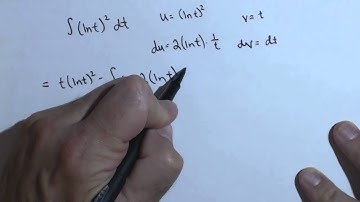 ∫(ln t)² dt u = (ln t)² v = t
du = 2(ln t)·1/t dv = dt
= t(ln t)² - ∫ 2(ln t)